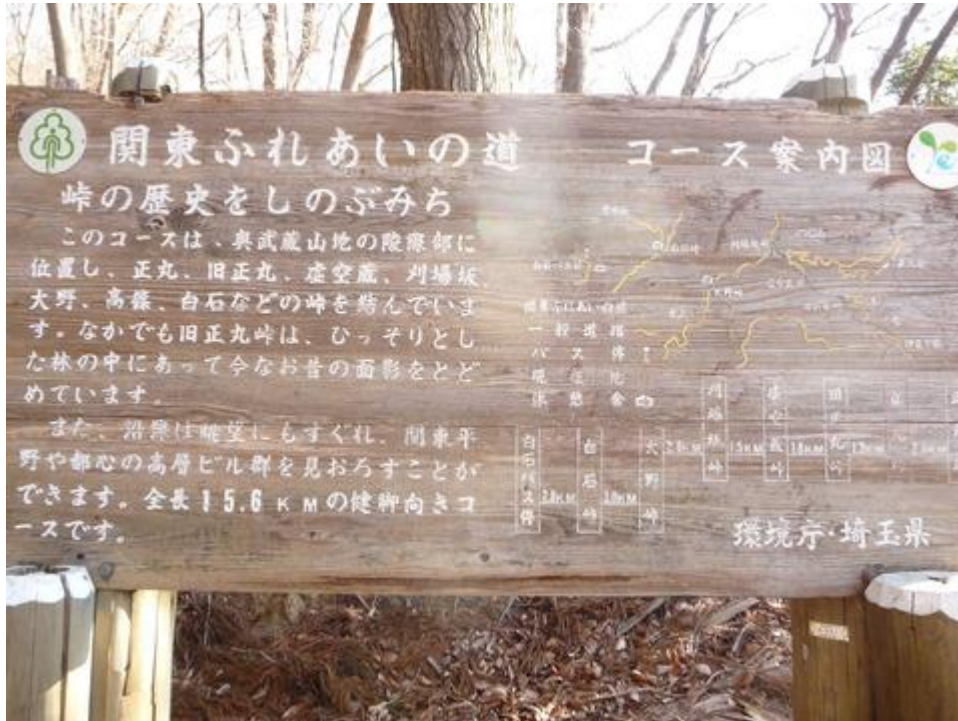 関東ふれあいの道
コース案内図
峠の歴史をしのぶみち
このコースは、奥武蔵山地の稜線部に
位置し、正丸、旧正丸、虚空蔵、刈場坂、
大野、高篠、白石などの峠を結んでいま
す。なかでも旧正丸峠は、ひっそりとし
た林の中にあって今なお昔の面影をとど
めています。
また、沿線は眺望にもすぐれ、関東平
野や都心の高層ビル群を見おろすことが
できます。全長15.6KMの健脚向きコ
ースです。
関東ふれあいの道
一般道路
バス停
休憩舎
白石バス停
2.8KM
白石峠
大野峠
刈場坂峠
1.5KM
虚空蔵峠
旧正丸峠
環境庁・埼玉県